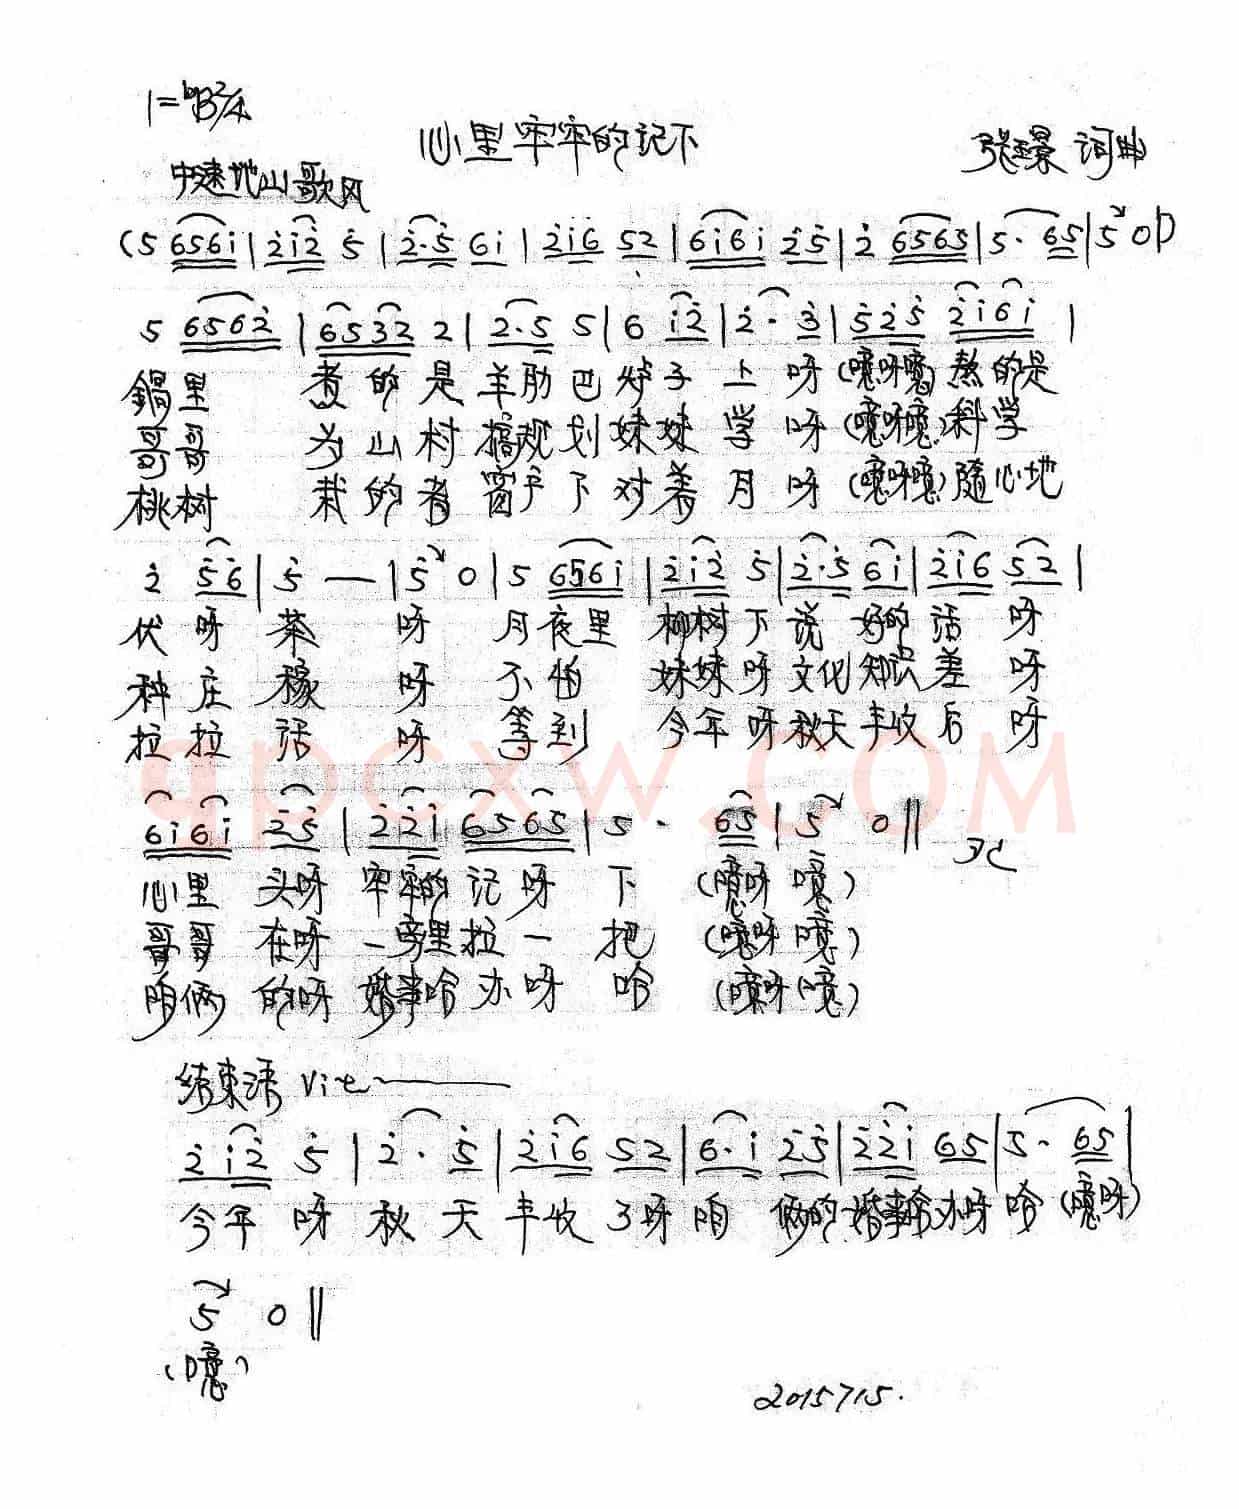 1=ᵇB 2/4
心里牢牢的记下
张景 词曲
中速地山歌风
(5 656i | 2i2 5 | 2·5 6i | 2i6 52 | 6i6i 25 | 2 6565 | 5· 65 | 5 0)
5 6562 | 6532 2 | 2·5 5 | 6 i2 | 2· 3 | 525 2i6i |
锅里 煮的是羊肋巴炉子上呀(噫呀噫)熬的是
哥哥 为山村搞规划妹妹学呀(噫呀噫)科学
桃树 栽的者窗户下对着月呀(噫呀噫)随心地
2 56 | 5 — | 5 0 | 5 656i | 2i2 5 | 2·5 6i | 2i6 52 |
伏呀茶呀月夜里柳树下说好的话呀
种庄稼呀不怕妹妹呀文化知识差呀
拉拉话呀等到今年呀秋天丰收后呀
6i6i 25 | 22i 6565 | 5· 65 | 5 0 ||
心里头呀牢牢的记呀下(噫呀噫)
哥哥在呀一旁里拉一把(噫呀噫)
咱俩的呀婚事哈办呀哈(噫呀噫)
结束 Vit
2i2 5 | 2· 5 | 2i6 52 | 6·i 25 | 22i 65 | 5· 65 |
今年呀秋天丰收了呀咱俩的婚事哈办呀哈(噫呀)
5 0 ||
(噫)
2015715.
qpcxw.com